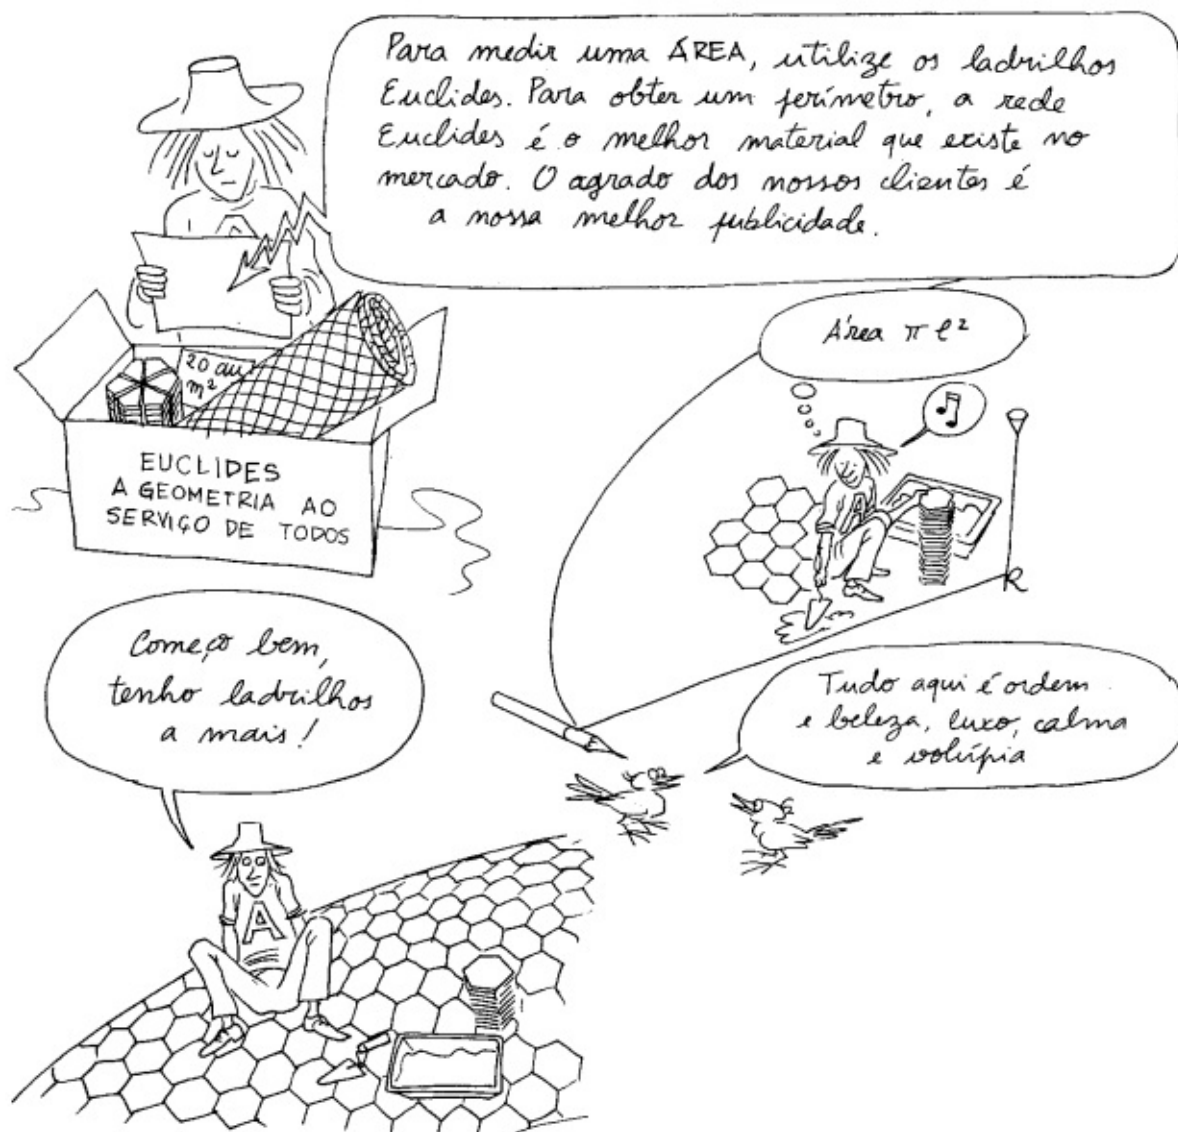 Para medir uma ÁREA, utilize os ladrilhos
Euclides. Para obter um perímetro, a rede
Euclides é o melhor material que existe no
mercado. O agrado dos nossos clientes é
a nossa melhor publicidade.
20 au
m²
EUCLIDES
A GEOMETRIA AO
SERVIÇO DE TODOS
Área π l²
A
R
Começo bem,
tenho ladrilhos
a mais!
Tudo aqui é ordem
e beleza, luxo, calma
e volúpia
A